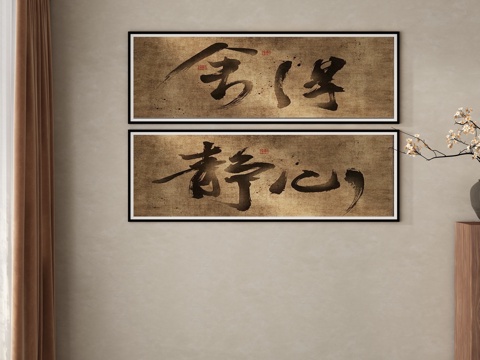 舍得
静心